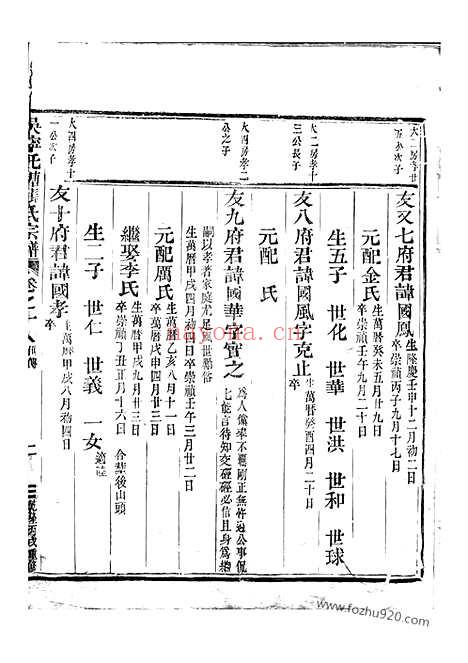 大二房孝廿五公次子
友又七府君諱國風生隆慶壬申十二月初二日卒崇禎丙子九月十七日
元配金氏生萬曆癸未五月廿九日卒崇禎壬午九月十九日
生五子 世化 世華 世洪 世和 世球
大二房孝十三公長子
友八府君諱國風字克止生萬曆癸酉四月二十日卒
元配 氏
大四房孝二公之子
友九府君諱國華字實之為人儻率不羈剛正無
七能言待知交硜硜必信且身為繼
嗣以孝著家庭尤足風世勵俗
生萬曆甲戌四月初四日卒崇禎壬午三月廿二日
元配厲氏生萬曆乙亥八月十一日卒萬曆戊申四月三日
繼娶李氏生萬曆甲戌九月廿三日卒崇禎丁丑正月十六日 合葬後山頭
生二子 世仁 世義 一女適
大四房孝十一公次子
友十府君諱國孝生萬曆甲戌八月初四日卒
氏宗譜
卷之
重修
hayona.com
www.fozhu920.com